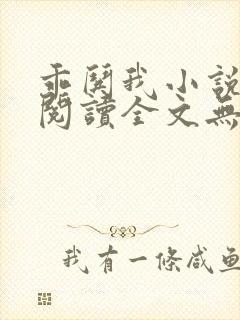 乖關我小說
閱讀全文無
我有一條咸魚